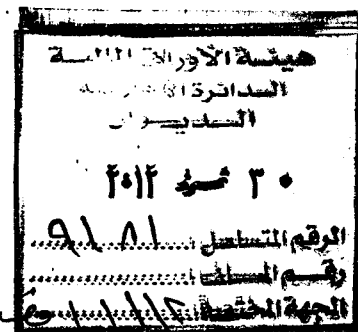 هيئة الأوراق المالية
الدائرة الإدارية
الديوان
٣٠ تموز ٢٠١٢
الرقم المتسلسل ٩١٨١
رقم الملف
الجهة المختصة